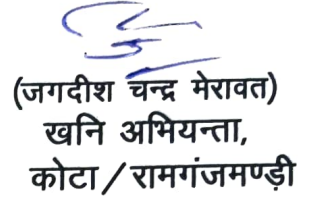 (जगदीश चन्द्र मेरावत)
खनि अभियन्ता,
कोटा/रामगंजमण्ड़ी